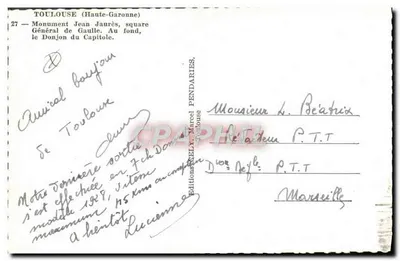 TOULOUSE (Haute-Garonne)
27 — Monument Jean Jaurès, square
Général de Gaulle. Au fond,
le Donjon du Capitole.
Amical bonjour
de Toulouse
Notre dernière sortie
s'est effectuée en
modèle 1928, vitesse
maximum 75 kms au compteur
A bientôt
Lucienne
Editions "ELY", Marcel PENDARIES, Toulouse
Monsieur L. Béatrix
P.T.T
Don P.T.T
Marseille